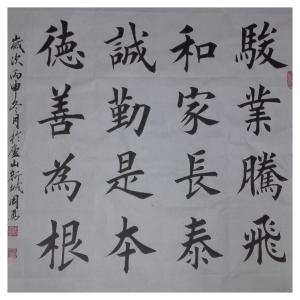 駿業騰飛
和家長泰
誠勤是本
德善為根
歲次丙申冬月於山新城周